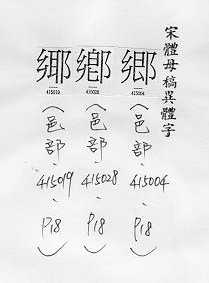 宋體母稿異體字
郷
415004
(邑部、415004、P18)
鄕
415028
(邑部、415028、P18)
415019
(邑部、415019、P18)